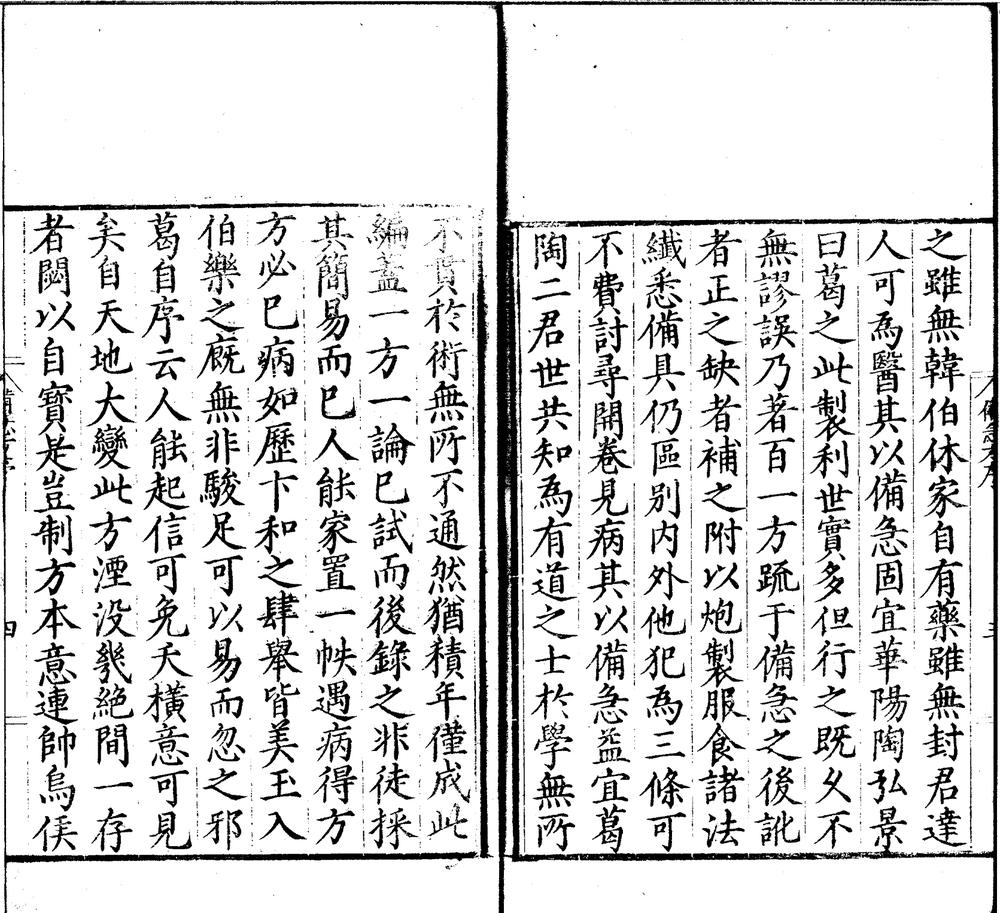 之雖無韓伯休家自有藥雖無封君達
人可為醫其以備急固宜華陽陶弘景
曰葛之此製利世實多但行之既久不
無謬誤乃著百一方疏于備急之後訛
者正之缺者補之附以炮製服食諸法
纖悉備具仍區別内外他犯為三條可
不費討尋開卷見病其以備急益宜葛
陶二君世共知為有道之士於學無所
不貫於術無所不通然猶積年僅成此
編蓋一方一論已試而後錄之非徒採
其簡易而已人能家置一帙遇病得方
方必已病如歷卞和之肆舉皆美玉入
伯樂之廐無非駿足可以易而忽之邪
葛自序云人能起信可免夭橫意可見
矣自天地大變此方湮没㡬絕間一存
者閟以自寶是豈制方本意連帥烏侯
四